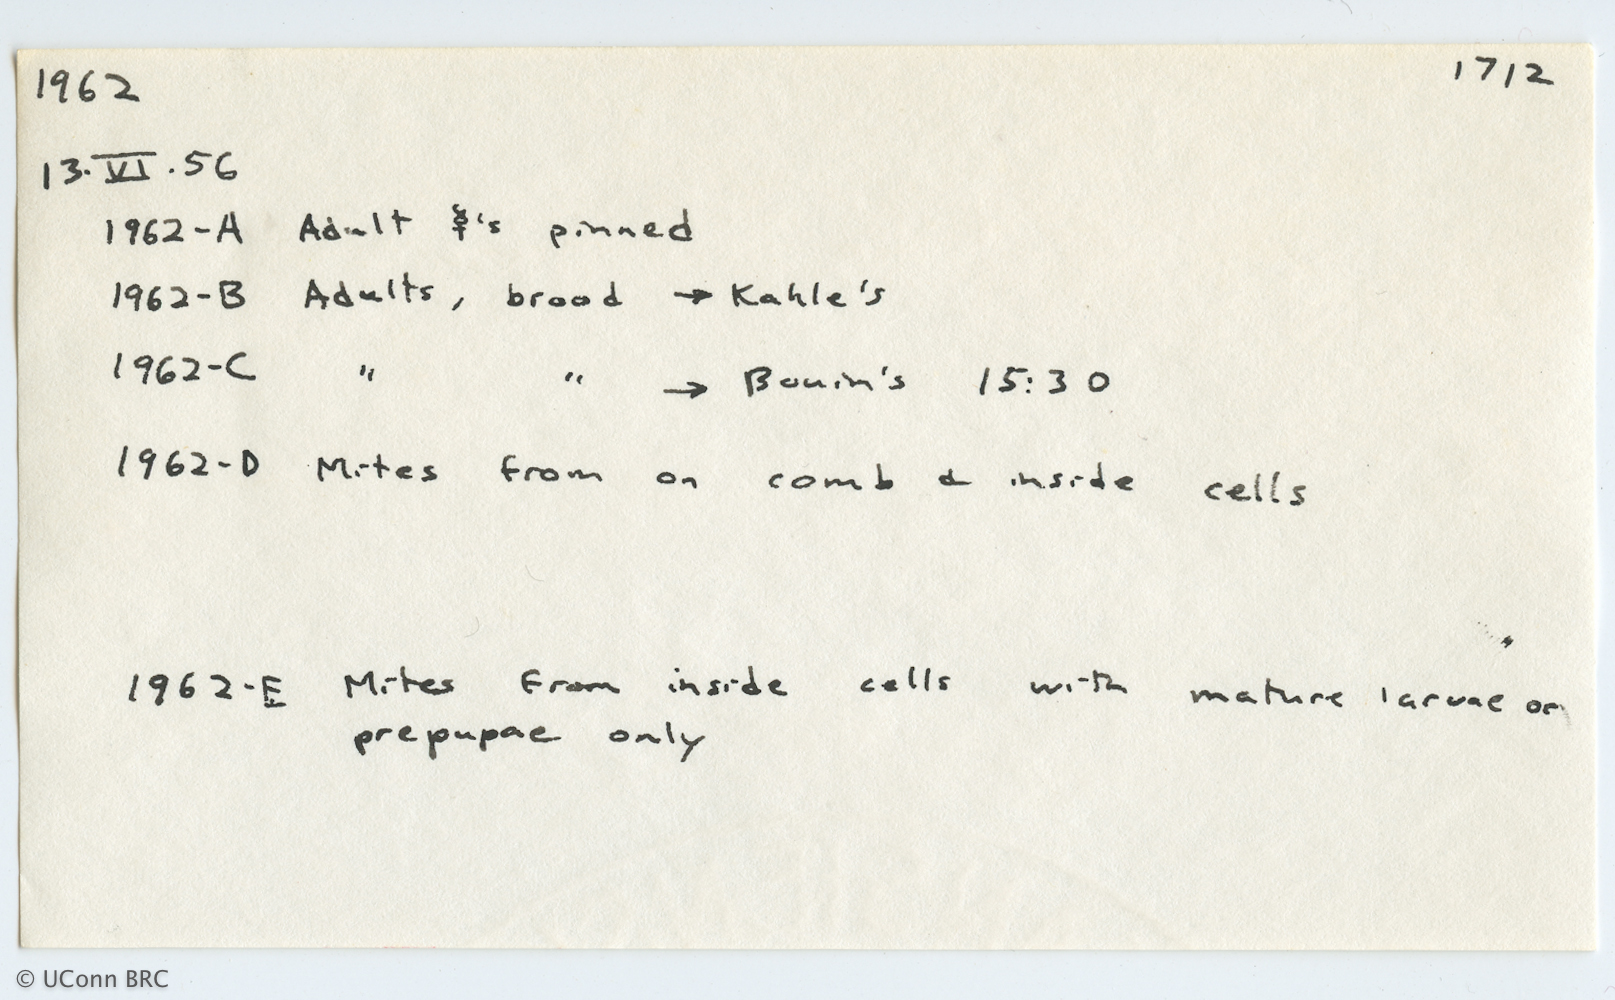 1962 1712
13.VI.56
1962-A Adult ☿'s pinned
1962-B Adults, brood → Kahle's
1962-C " " → Bouin's 15:30
1962-D Mites from on comb & inside cells
1962-E Mites from inside cells with mature larvae or
prepupae only
© UConn BRC